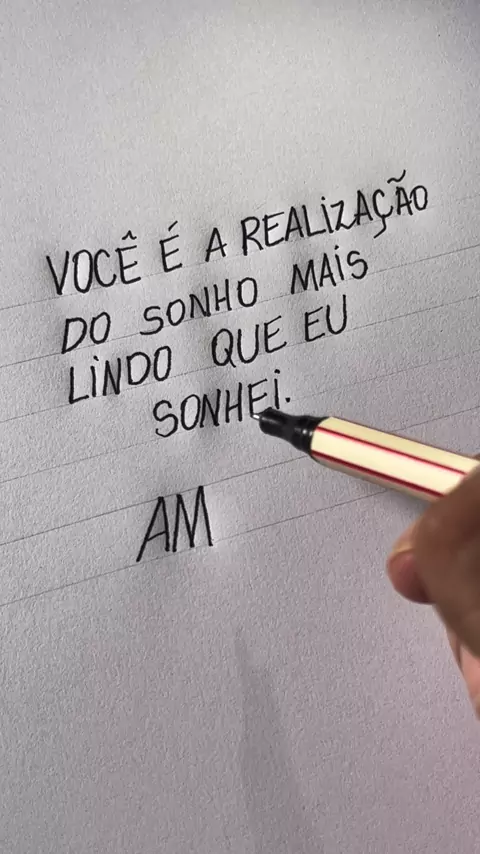 VOCÊ É A REALIZAÇÃO
DO SONHO MAIS
LINDO QUE EU
SONHEI.
AM